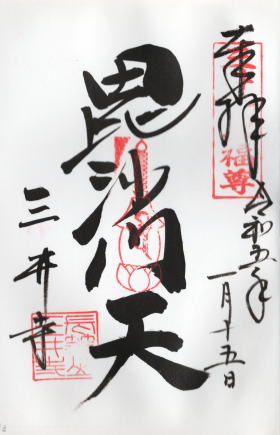 奉拝
令和五年
一月十五日
毘沙門天
三井寺
福尊